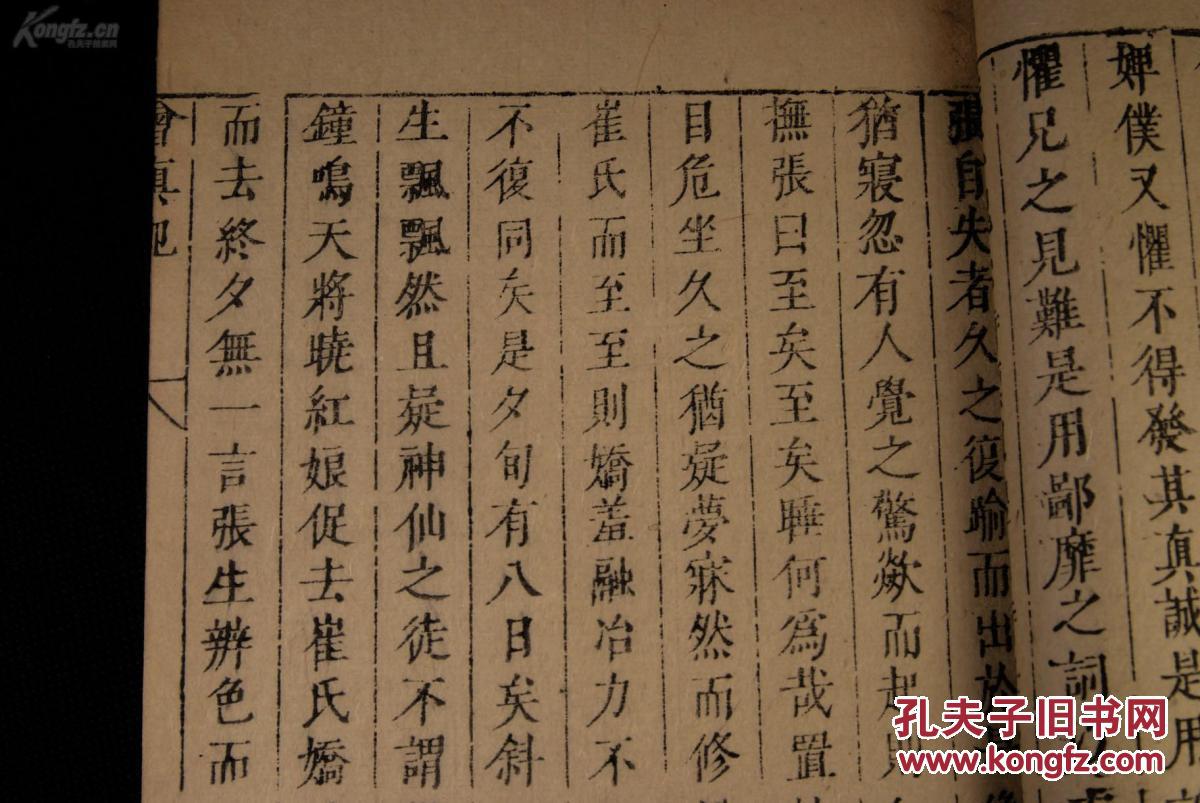 婢僕又懼不得發其真誠是用
懼兄之見難是用鄙靡之詞
張自失者久之復踰而出於
猶寢忽有人覺之驚歘而起則
撫張曰至矣至矣睡何爲哉置
目危坐久之猶疑夢寐然而修
崔氏而至至則嬌羞融冶力不
不復同矣是夕旬有八日矣斜
生飄飄然且疑神仙之徒不謂
鐘鳴天將曉紅娘促去崔氏嬌
而去終夕無一言張生辨色而
會真記
Kongfz.cn
孔夫子旧书网
孔夫子旧书网
www.kongfz.com